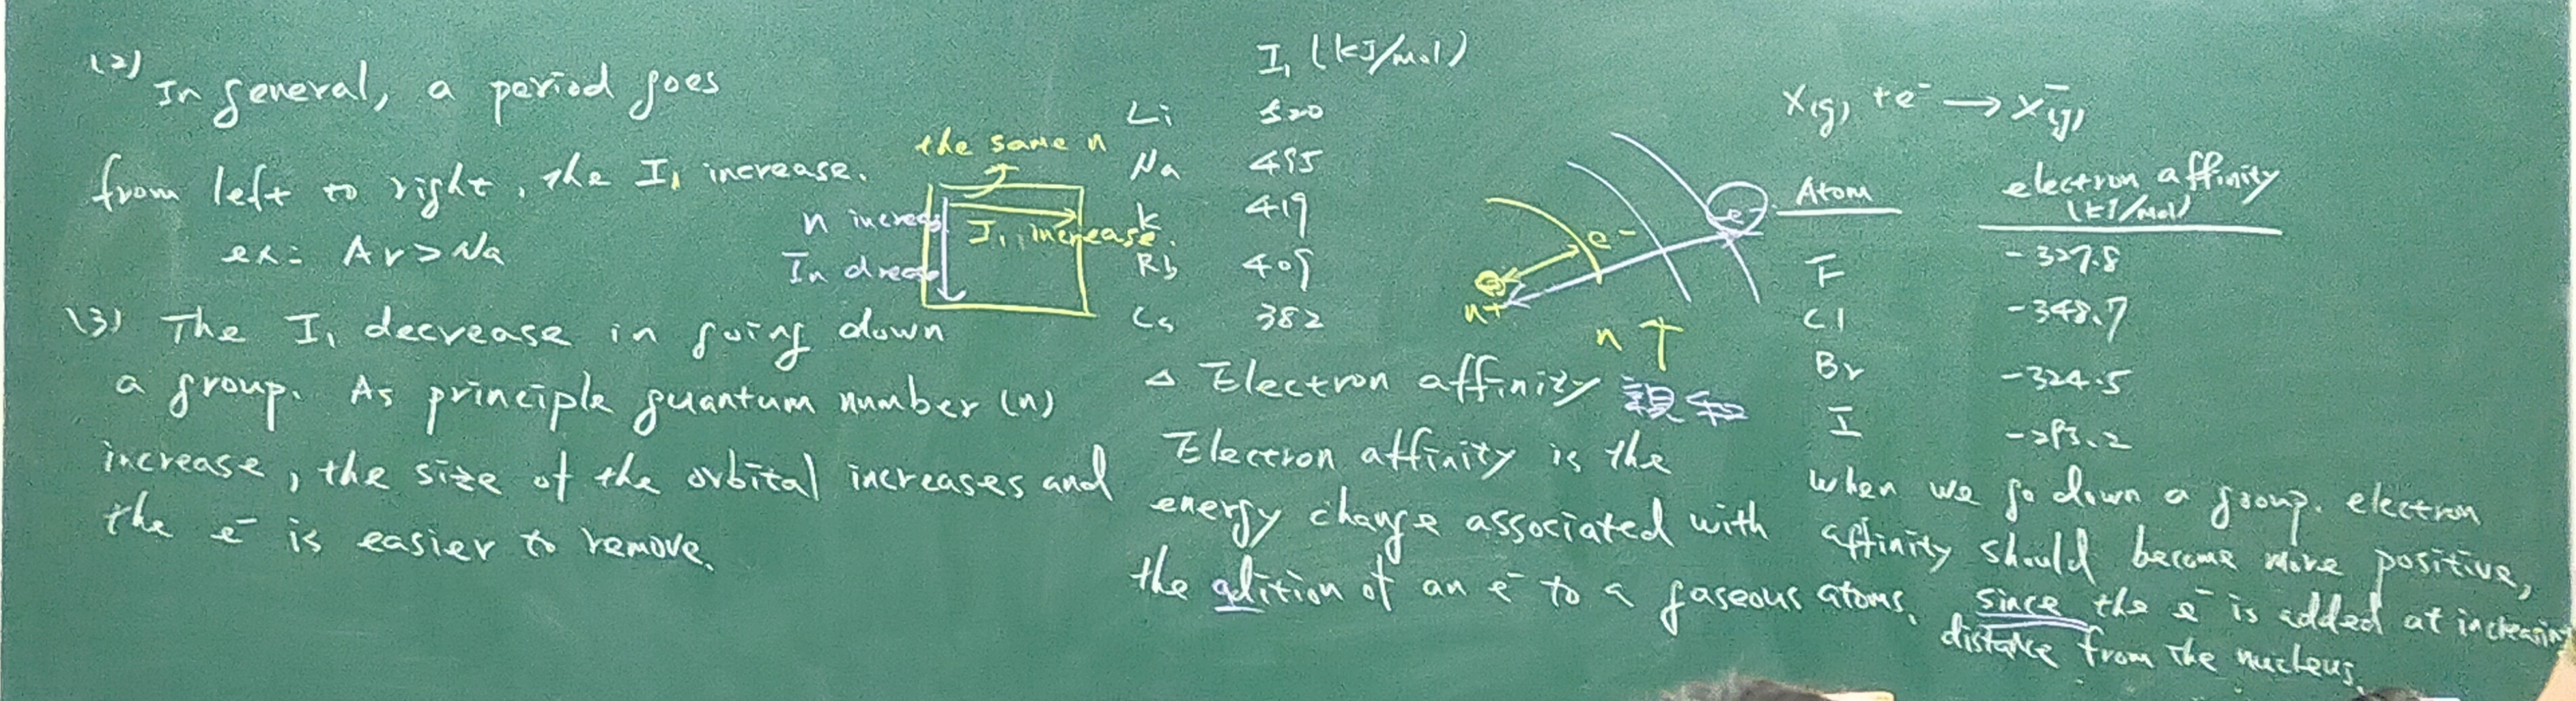 (2) In general, a period goes
from left to right, the I₁ increase.
ex: Ar > Na
(3) The I₁ decrease in going down
a group. As principle quantum number (n)
increase, the size of the orbital increases and
the e⁻ is easier to remove.
the same n
n increas
I₁, increase.
In dreas
I₁ (kJ/mol)
Li 520
Na 495
K 419
Rb 409
Cs 382
e⁻
e⁻
n+
n ↑
△ Electron affinity 親和
Electron affinity is the
energy change associated with
the adition of an e⁻ to a gaseous atoms.
X(g) + e⁻ → X⁻(g)
Atom electron affinity
(kJ/mol)
F -327.8
Cl -348.7
Br -324.5
I -295.2
when we go down a group. electron
affinity should become more positive,
since the e⁻ is added at increasing
distance from the nucleus.